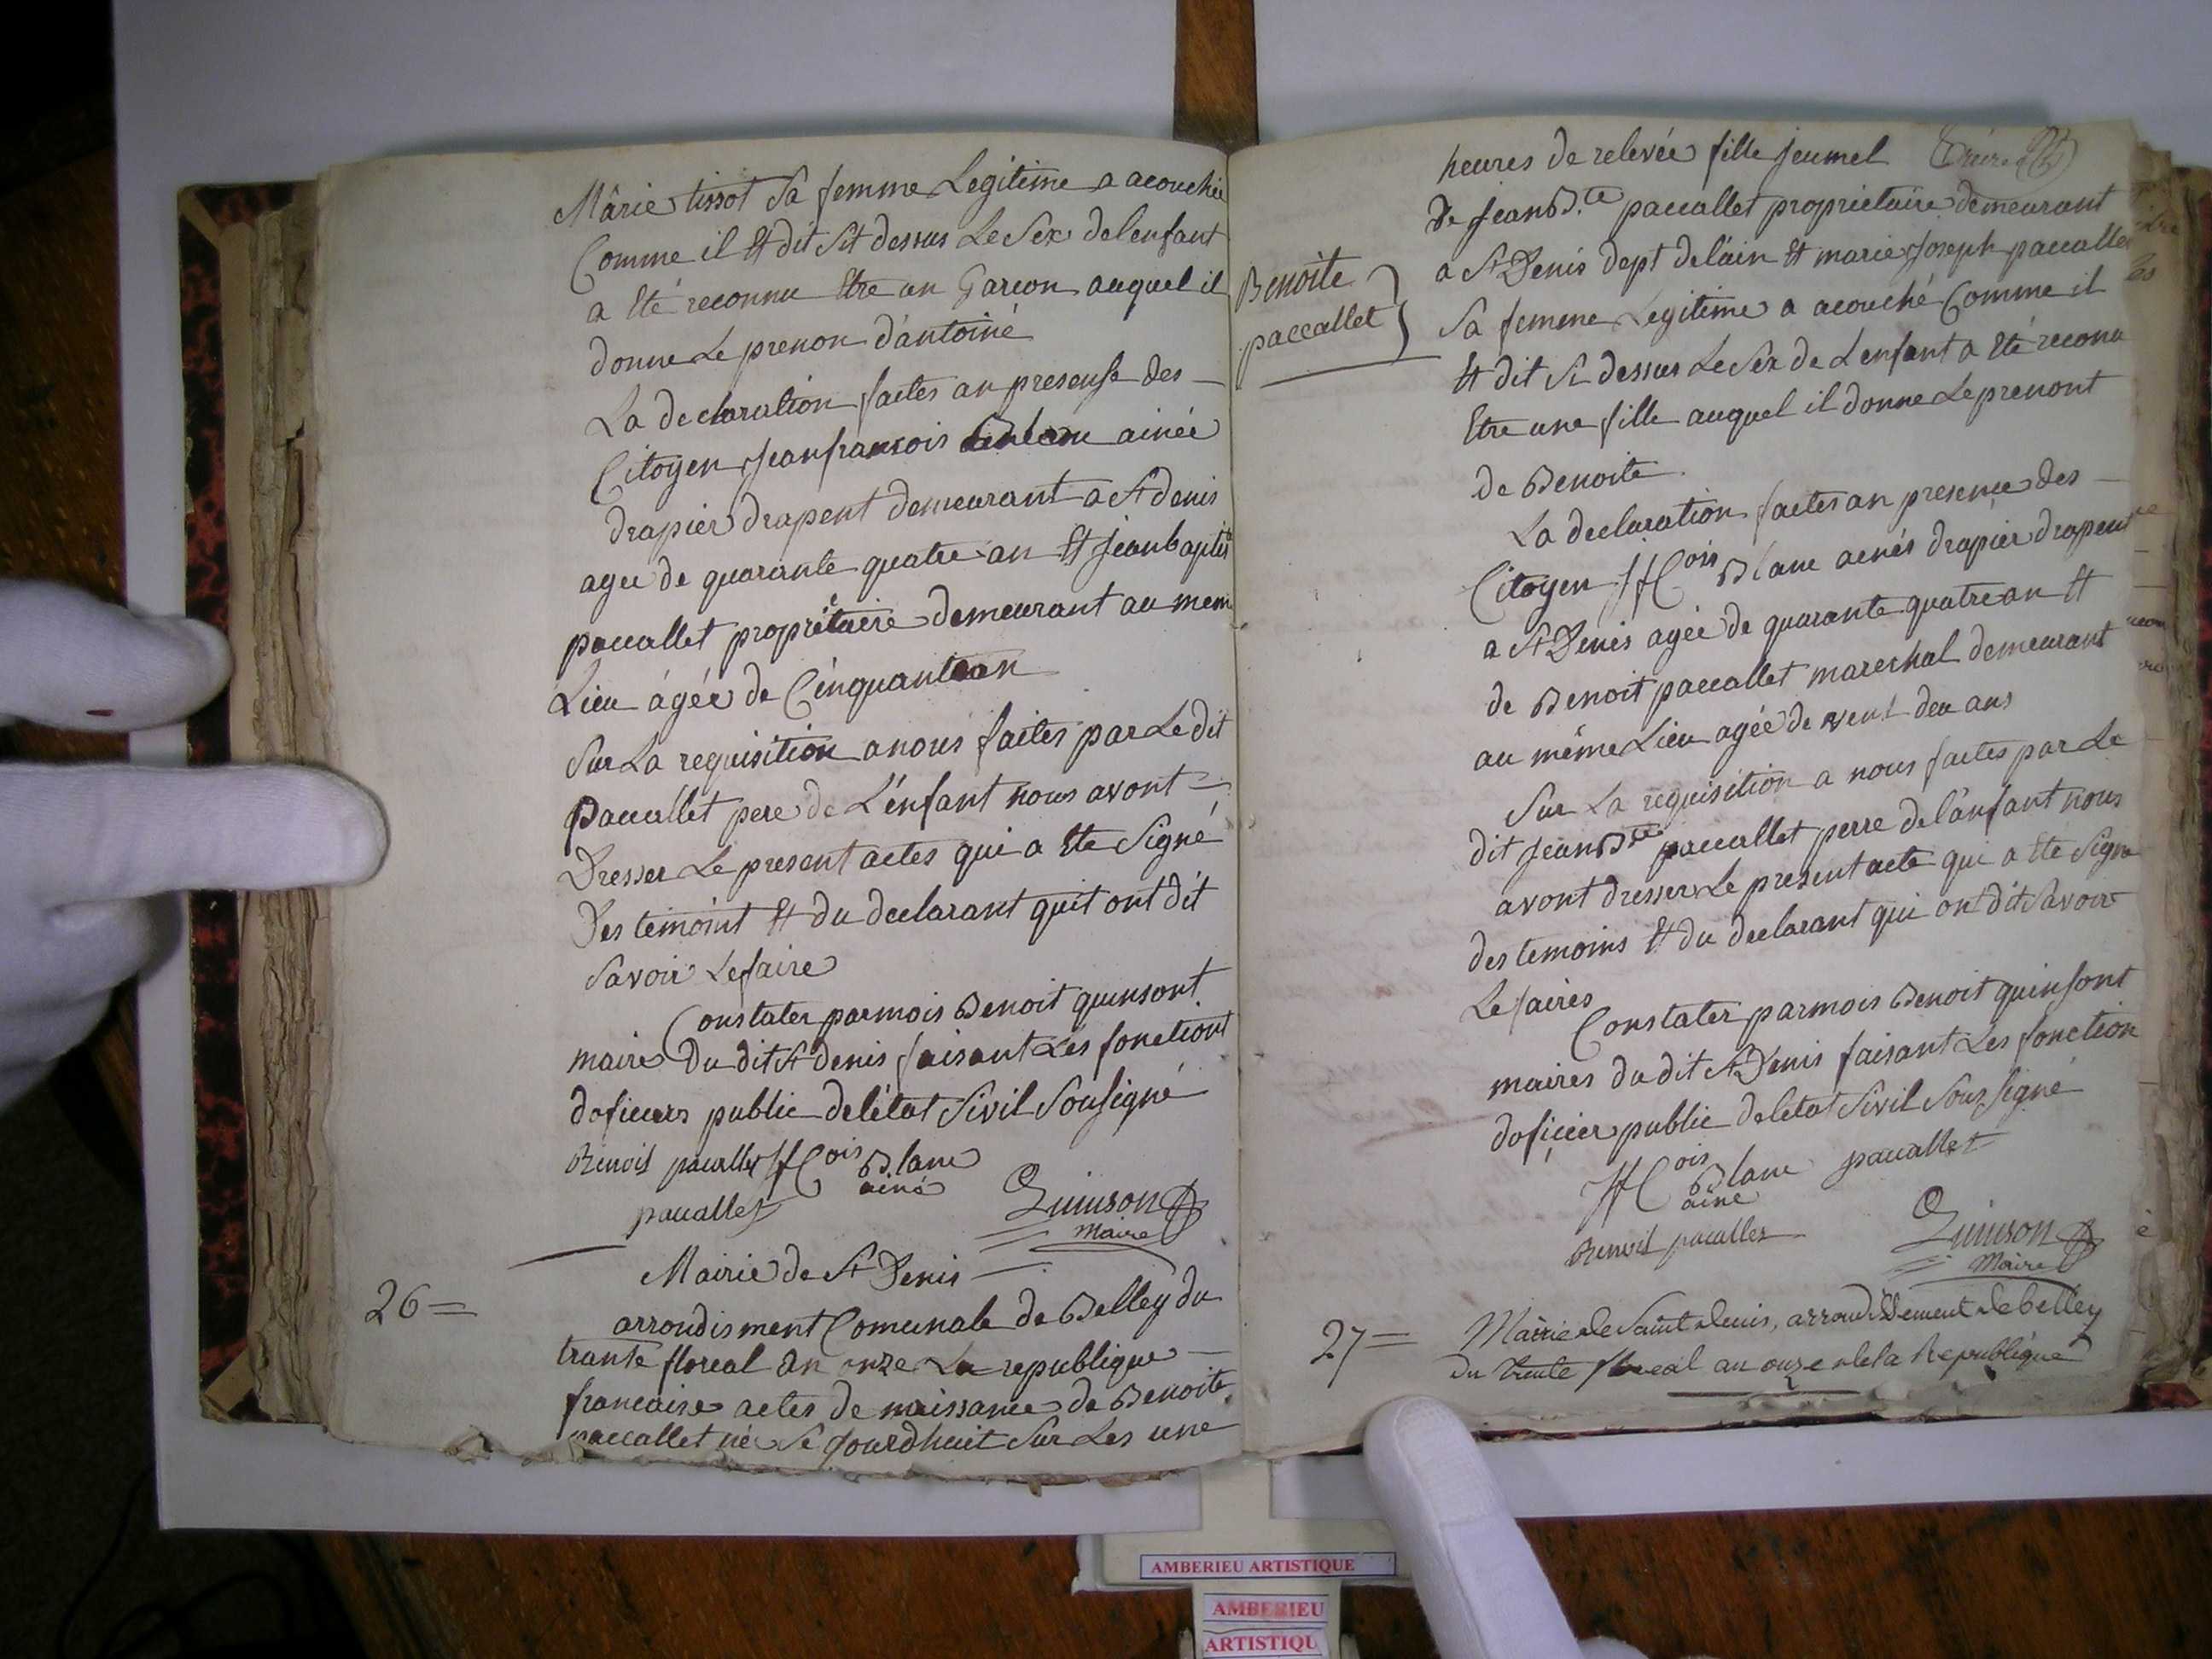 Mârie tissot Sa femme Legitime a acouchée
Comme il Et dit Sit dessus Le Sex del enfant
a Eté reconnu Etre un Garcon auquel il
donne Le prenon d'antoine
La declaration faites an presense des
Citoyen Jeanfransois ainée
drapier drapent demeurant a St denis
agee de quarante quatre an Et Jeanbaptis
paccallet propriétaire demeurant au mem
Lieu ágée de Cinquante an
Sur La requisition a nous faites par Le dit
paccallet pere de L'énfant nous avont =
Dresser Le present actes qui a Ete Signé
Des temoint Et du declarant quit ont dit
Savoir Lefaire
Constater parmois Benoit quinsont
maire Du dit St denis faisant Les fonctiont
doficiers public de létat Sivil Sousigné
Benoit paccallet JfCois Blanc
ainé
paccallet
Quinson
Maire
Mairie de St Denis
26 =
arrondisment Comunale de Belley du
trante floreal an onze La republique
francaise actes de naissance de Benoite
paccallet né Se Jourdhuit Sur Les une
heures de relevée fille Jeumel
de Jean Bte paccallet propriétaire demeurant
a St Denis dept de l'ain Et marie Joseph paccallet
Benoite
paccallet
Sa femme Legitime a acouché Comme il
Et dit Si dessus Le Sex de L enfant a Eté reconu
Etre une fille auquel il donne Le prenont
de Benoite
La declaration faites an presence des
Citoyen JfCois Blanc ainés drapier drapent
a St Denis agée de quarante quatre an Et
de Benoit paccallet marechal demeurant
au même Lieu agée de vent deu ans
Sur La requisition a nous faites par Le
dit Jean Bte paccallet perre de l'anfant nous
avont dresser Le present acte qui a Ete Signé
des temoins Et du declarant qui ont dit Savoir
Le faires
Constater parmois Benoit quinsont
maires du dit St Denis faisant Les fonction
doficier public de létat Sivil Sous Signé
JfCois Blanc paccallet
ainé
Benoit paccallet
Quinson
Maire
27 =
Mairie de Saint denis, arrondissement de belley
du trente floreal an onze de la Republique
AMBERIEU ARTISTIQUE
AMBERIEU
ARTISTIQU